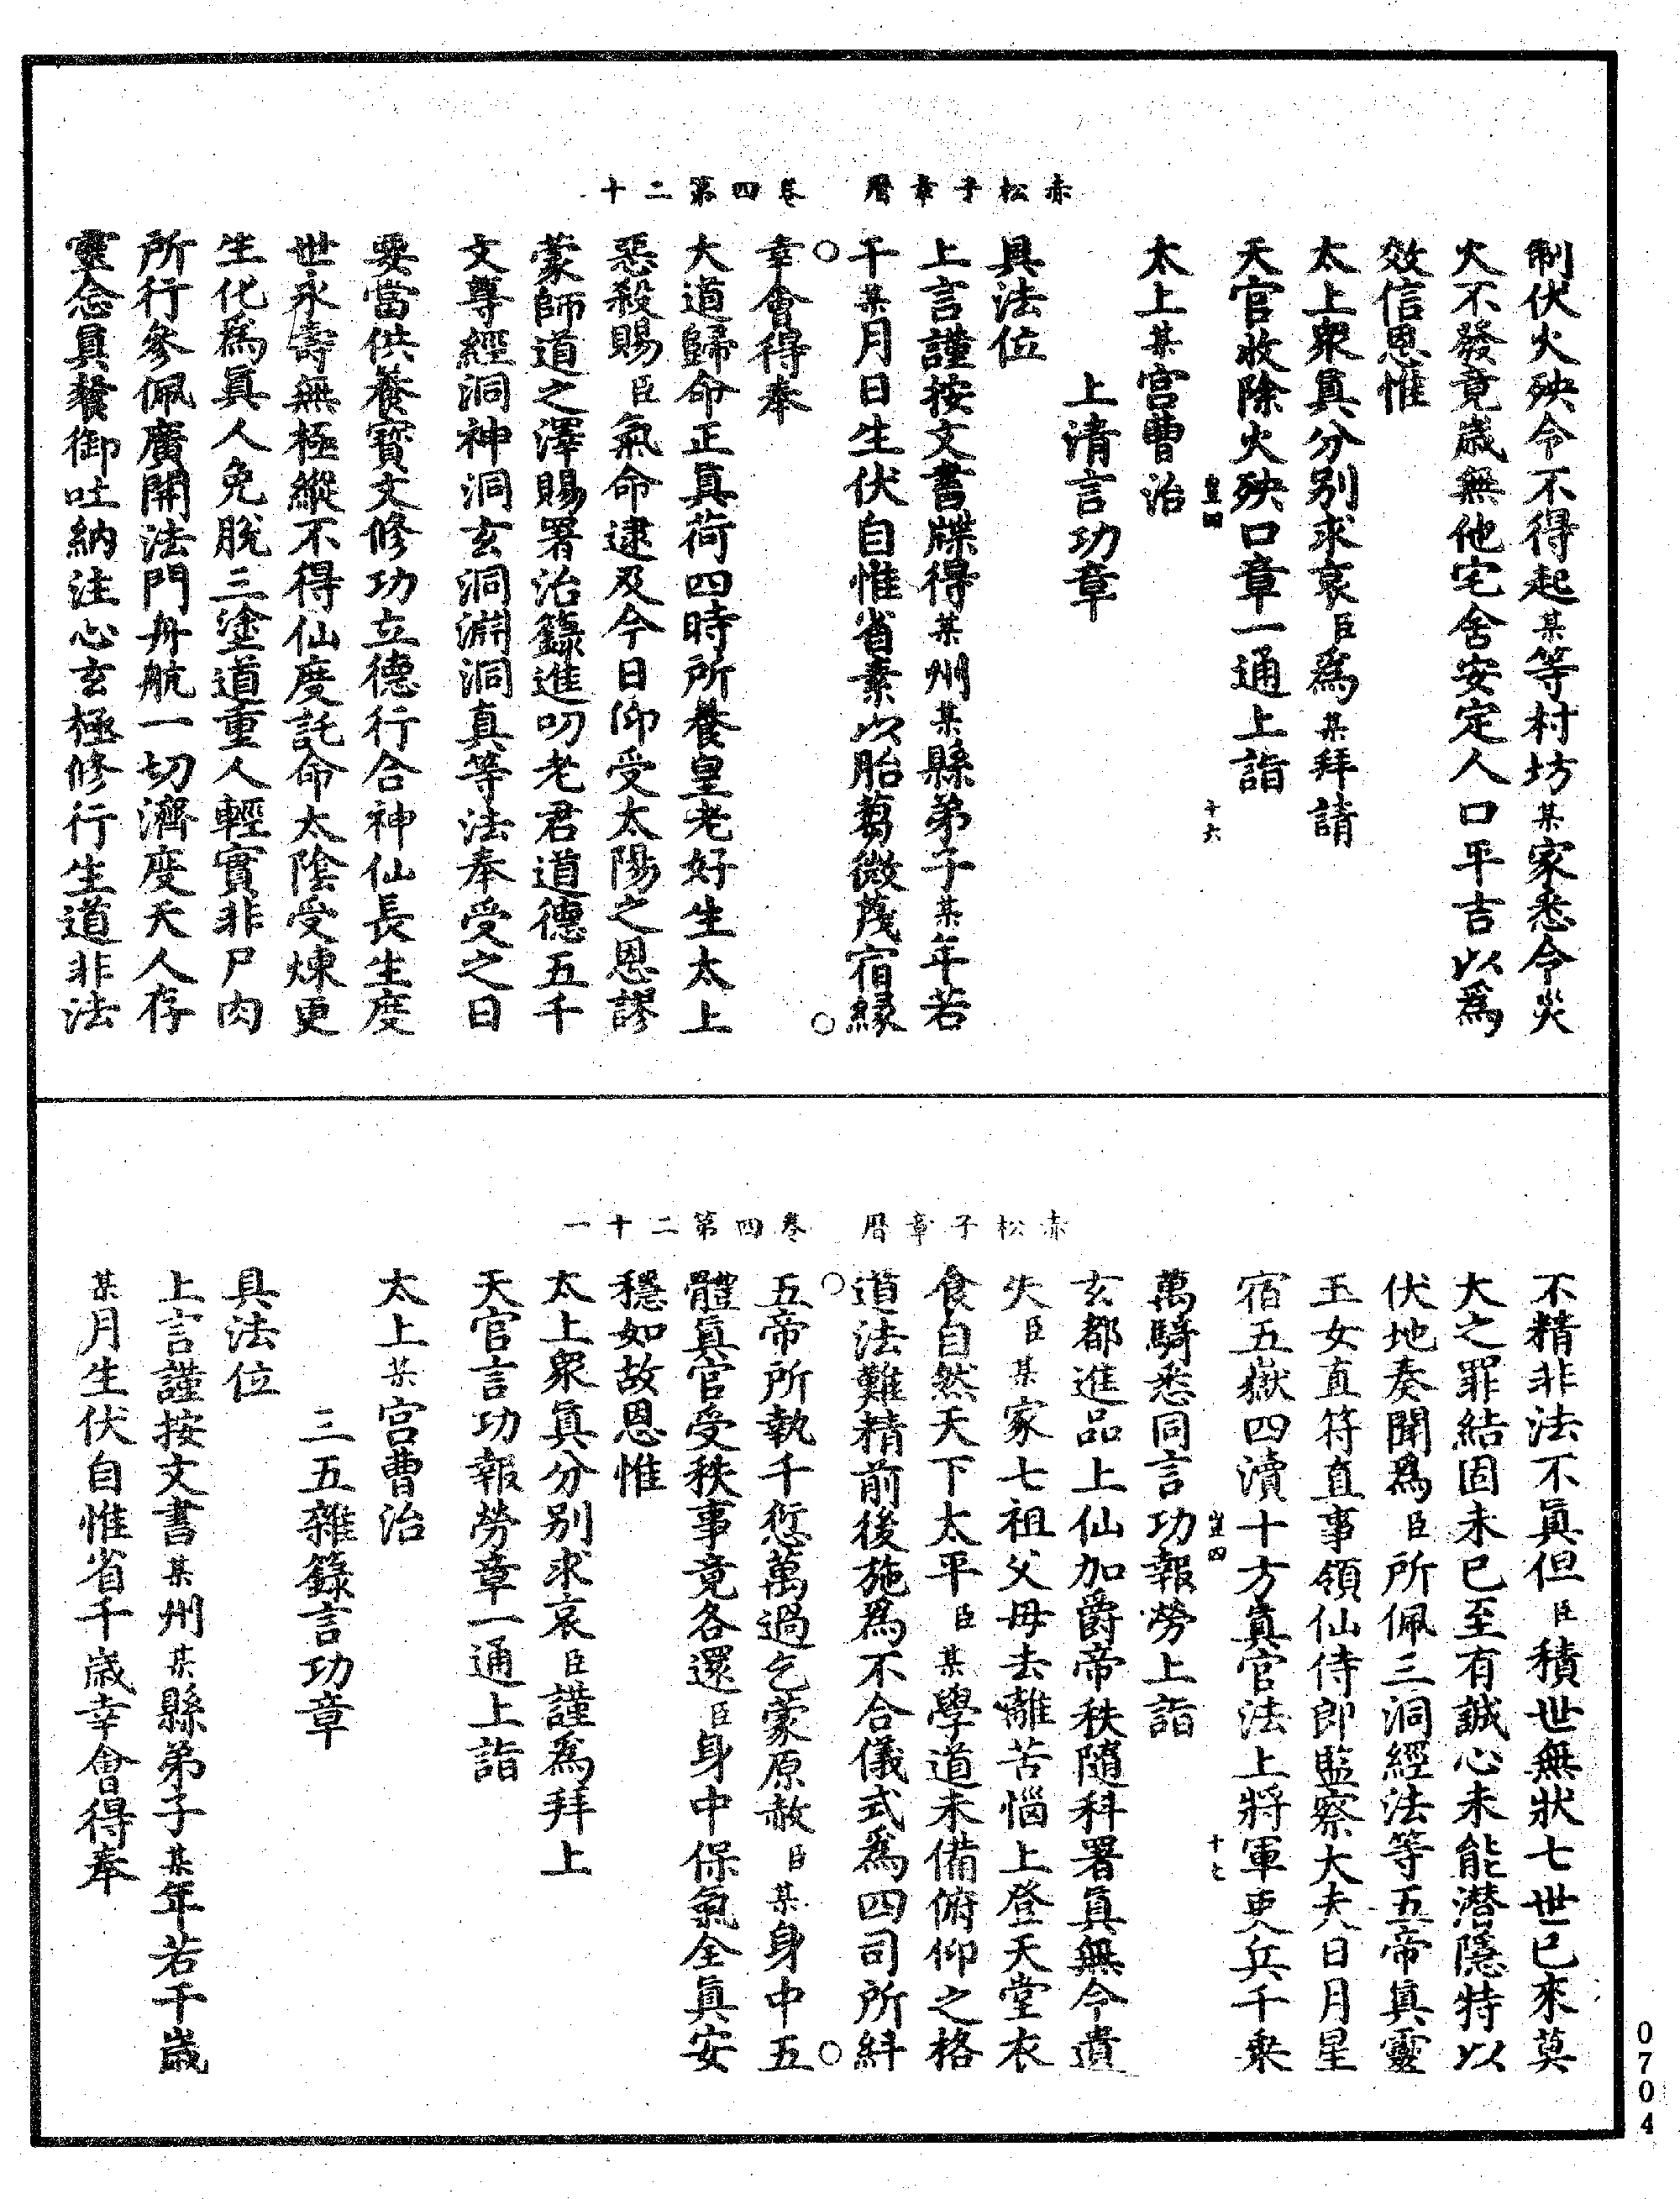 赤松子章曆　卷四第二十
制伏火殃令不得起某等村坊某家悉令災
火不發竟歲無他宅舍安定人口平吉以爲
效信恩惟
太上衆眞分別求哀臣爲某拜請
天官收除火殃口章一通上詣
皇四　十六
太上某宮曹治
上清言功章
具法位
上言謹按文書牒得某州某縣弟子某年若
干某月日生伏自惟省素以胎蒭微茂宿緣
幸會得奉
大道歸命正眞荷四時所養皇老好生太上
惡殺賜臣氣命逮及今日仰受太陽之恩謬
蒙師道之澤賜署治籙進叨老君道德五千
文尊經洞神洞玄洞淵洞真等法奉受之日
要當供養寶文修功立德行合神仙長生度
世永壽無極縱不得仙度託命太陰受煉更
生化爲眞人免脫三塗道重人輕實非尸肉
所行參佩廣開法門舟航一切濟度天人存
靈念眞餐御吐納注心玄極修行生道非法
赤松子章曆　卷四第二十一
不精非法不眞但臣積世無狀七世已來莫
大之罪結固未已至有誠心未能潛隱特以
伏地奏聞爲臣所佩三洞經法等五帝眞靈
玉女直符直事領仙侍郎監察大夫日月星
宿五嶽四瀆十方眞官法上將軍吏兵千乘
皇四　十七
萬騎悉同言功報勞上詣
玄都進品上仙加爵帝秩隨科署眞無令遺
失臣某家七祖父母去離苦惱上登天堂衣
食自然天下太平臣某學道未備俯仰之格
道法難精前後施爲不合儀式爲四司所糾
五帝所執千愆萬過乞蒙原赦臣某身中五
體眞官受秩事竟各還臣身中保氣全眞安
穩如故恩惟
太上衆眞分別求哀臣謹爲拜上
天官言功報勞章一通上詣
太上某宮曹治
三五雜籙言功章
具法位
上言謹按文書某州某縣弟子某年若干歲
某月生伏自惟省千歲幸會得奉
0704